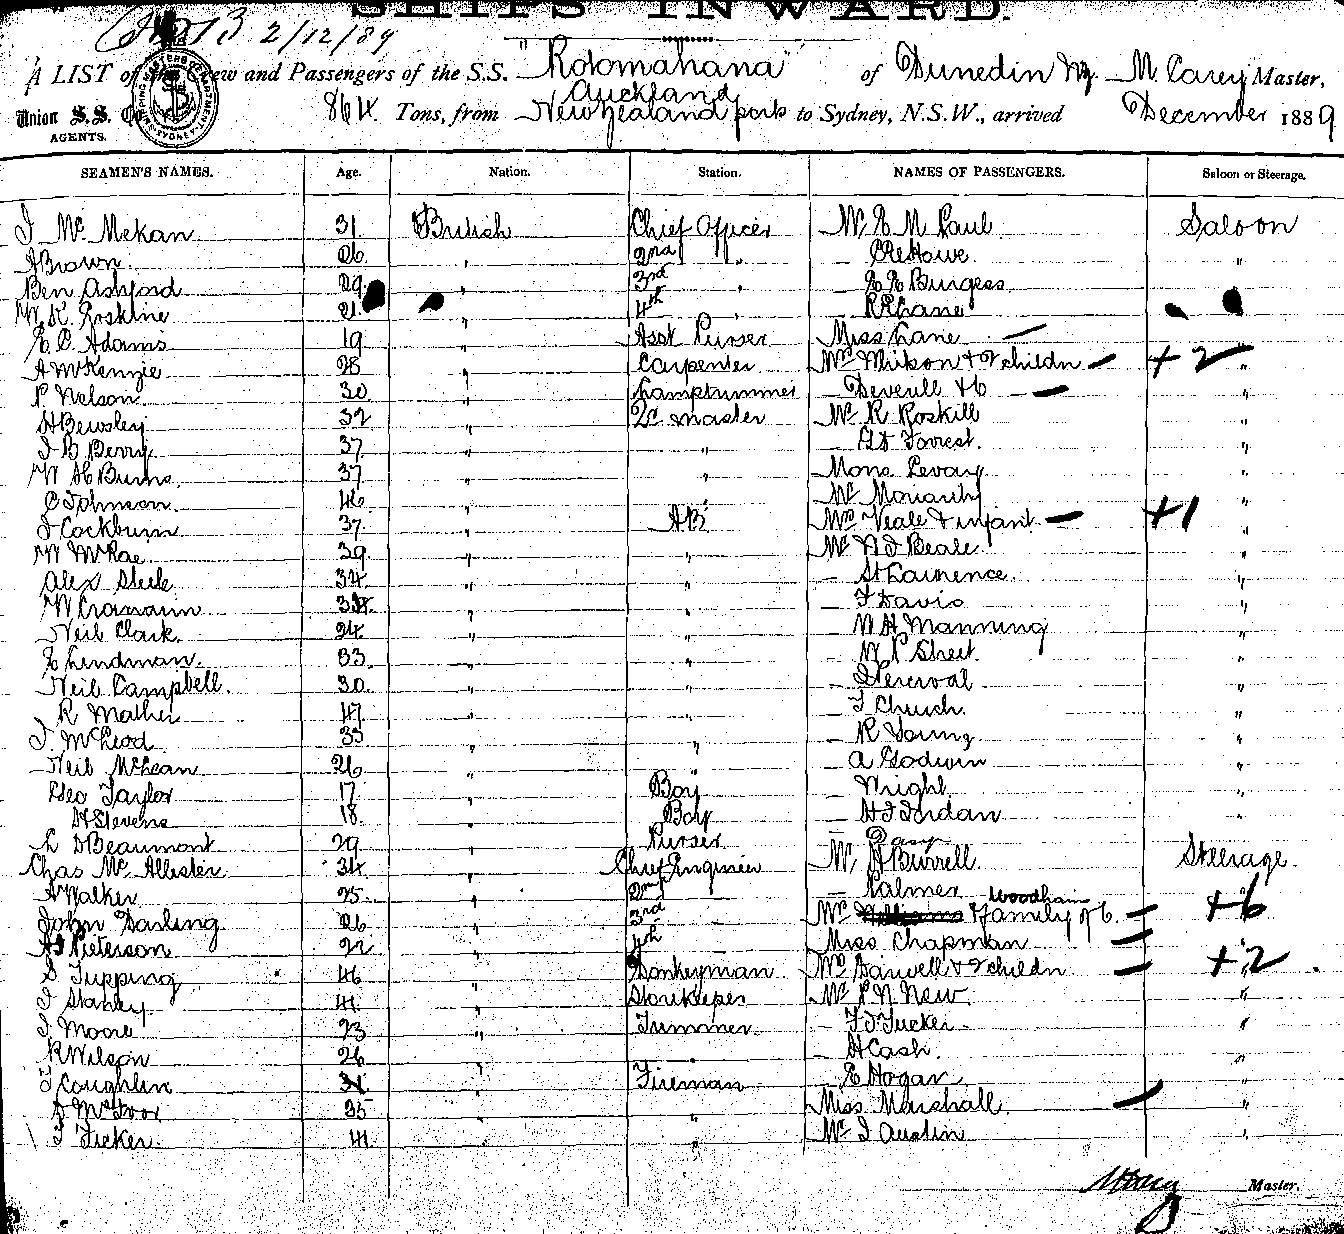 SHIPS INWARD.
2/12/89
A LIST of the Crew and Passengers of the S.S. "Rotomahana" of Dunedin N.Z. M. Carey Master,
Auckland
Union S.S. Co 864 Tons, from New Zealand ports to Sydney, N.S.W., arrived December 1889
AGENTS.
SEAMEN'S NAMES. Age. Nation. Station. NAMES OF PASSENGERS. Saloon or Steerage.
J McMekan 31 British Chief Officer Mr E M Paul Saloon
Brown 26 " 2nd " Howe "
Ben Ashford 29 " 3rd " Burgess
W. K. Erskine 21 " 4th Lane
E. C. Adams 19 " Asst Purser Miss Lane
A McKenzie 28 " Carpenter Mrs & 2 childn + 2 "
P Nelson 30 " Lamptrimmer Deverell "
H Bewsley 32 " Qr Master Mr R Roskill "
J B Berry 37 " " Forrest "
W H Burns 37 " " Mons Levary "
C Johnson 46 " " Mr Moriarty "
J Cockburn 37 " AB Mrs Veale & infant +1 "
W McRae 39 " " Mr N J Beale "
Alex Steele 34 " " St Lawrence "
W 34 " " F Davis "
Neil Clark 24 " " W H Manning "
E Lindman 33 " " W P Street "
Neil Campbell 30 " " Percival "
R Mather 47 " " F Church "
J. McLeod 35 " " R Young "
Neil McLean 26 " " A Godwin "
Geo Taylor 17 " Boy Wright "
H Stevens 18 " Boy H J Jordan "
L D Beaumont 29 " Purser
Chas McAllister 34 " Chief Engineer Mr Burrell Steerage
A Walker 25 " 2nd Palmer
Woodham
John Darling 26 " 3rd Mr Williams & family of 6 +6
Pieterson 22 " 4th Miss Chapman
S Tupping 46 " Donkeyman Mrs & 2 childn +2
J Stanley 41 " Storekeeper Mr P N New "
J. Moore 23 " Trimmer F J Tucker "
R Wilson 26 " " H Cash "
J Coughlin 31 " Fireman E Hogan "
35 " " Miss Marshall "
F Tucker 41 " " Mr J Austin "
M Carey Master.